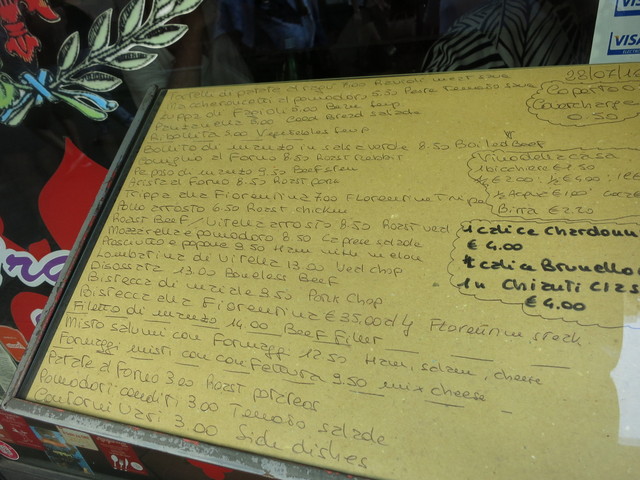 28/07/1
Coperto
Covercharge
0.50
Zuppa di Fagioli 5.00 Bean soup
Panzanella 5.00 Cold Bread salade
Ribollita 5.00 Vegetables soup
Bollito di manzo in salsa verde 8.50 Boiled Beef
Coniglio al Forno 8.50 Roast rabbit
Peposo di manzo 9.50 Beef stew
Arista al Forno 8.50 Roast pork
Trippa alla Fiorentina 7.00 Florentine Tripe
Pollo arrosto 6.50 Roast chicken
Roast Beef / Vitella arrosto 8.50 Roast veal
Mozzarella e pomodoro 8.50 Caprese salade
Prosciutto e popone 9.50 Ham with melon
Lombatina di vitella 13.00 Veal chop
Disossata 13.00 Boneless Beef
Bistecca di maiale 9.50 Pork Chop
Bistecca alla Fiorentina € 35,00 al kg Florentin steak
Filetto di manzo 14.00 Beef Filet
Misto salumi con Formagg 12.50 Ham, salam, cheese
Formaggi misti con confettura 9.50 mix cheese
Patate al Forno 3.00 Roast potatoes
Pomodori conditi 3.00 Tomato salade
Contorni Vari 3.00 Side dishes
Vino della casa
1 bicchiere € 1.50
Birra € 2.20
1 calice Chardonn
€ 4.00
1 calice Brunello
1 n Chianti Clas
€ 4.00
VISA
VISA